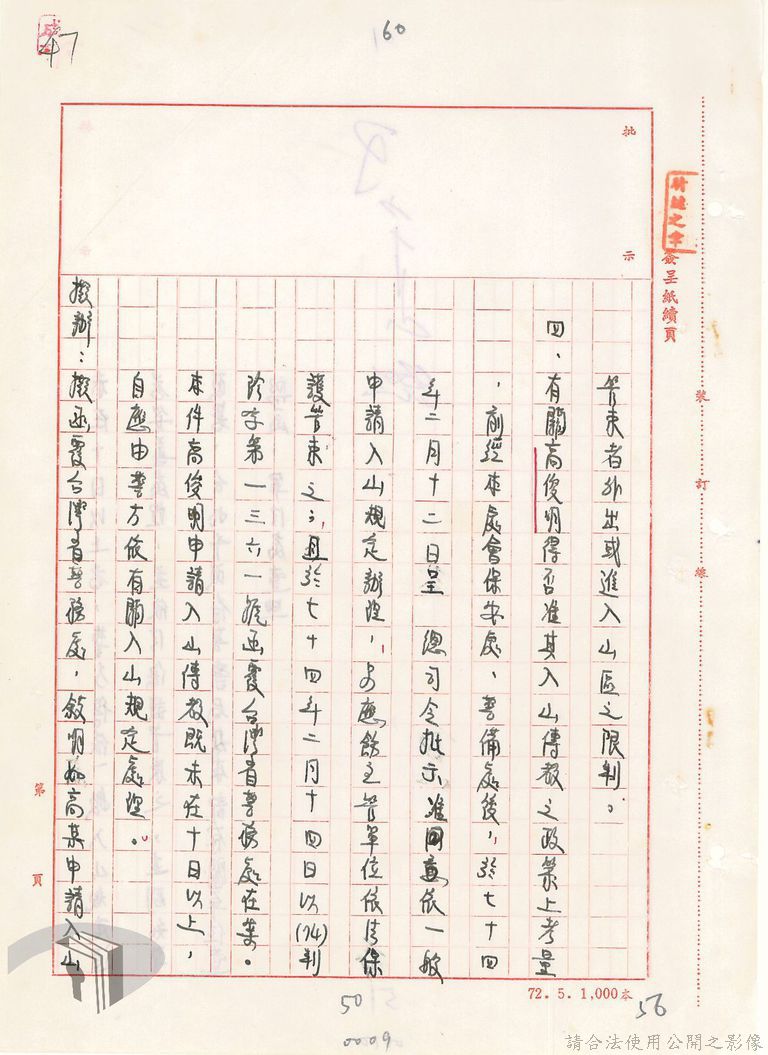 47
60
批示
簽呈紙續頁
裝訂線
管束者外出或進入山區之限制。
四、有關高俊明得否准其入山傳教之政策上考量
,前經本處會保安處、警備處後,於七十四
年二月十二日呈 總司令批示准同意依一般
申請入山規定辦理,另應飭主管單位依法保
護管束之,且於七十四年二月十四日以(74)判
字第一三六一號函覆台灣省警務處在案。
本件高俊明申請入山傳教既未在十日以上,
自應由警方依有關入山規定處理。
擬辦:擬函覆台灣省警務處,敘明如高某申請入山
第 頁
72.5.1,000本
50
56
0009
請合法使用公開之影像